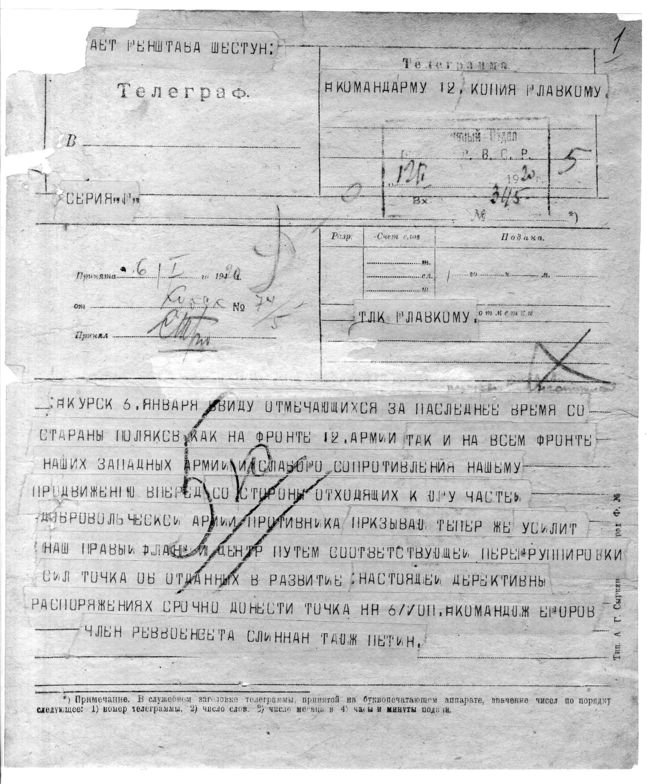 АЕТ ГЕНШТАБА ШЕСТУН:
1
Телеграф.
Телеграмма
#КОМАНДАРМУ 12, КОПИЯ ГЛАВКОМУ.
В
Р. В. С. Р.
5
1920
Вх
345
№
*)
СЕРИЯ„Г„
Разр.
Счет слов
Подача.
т.
сл.
ш
го ч. м.
Принята 6/I го 1920.
от № 74/5
Принял
ТЛК ГЛАВКОМУ.
отметки
:#КУРСК 6. ЯНВАРЯ ВВИДУ ОТМЕЧАЮЩИХСЯ ЗА ПАСЛЕДНЕЕ ВРЕМЯ СО
СТАРАНЫ ПОЛЯКСВ КАК НА ФРОНТЕ 12. АРМИИ ТАК И НА ВСЕМ ФРОНТЕ
НАШИХ ЗАПАДНЫХ АРМИИ И СЛАБОГО СОПРОТИВЛЕНИЯ НАШЕМУ
ПРОДВИЖЕНИЮ ВПЕРЕД СО СТОРОНЫ ОТХОДЯЩИХ К ЮГУ ЧАСТЕЙ
ДОБРОВОЛЬЧЕСКСИ АРМИИ ПРОТИВНИКА ПРКЗЫВАЮ ТЕПЕР ЖЕ УСИЛИТ
НАШ ПРАВЫЙ ФЛАНГ И ЦЕНТР ПУТЕМ СООТВЕТСТВУЮЩЕЙ ПЕРЕГРУППИРОВКИ
СИЛ ТОЧКА ОБ ОТДАННЫХ В РАЗВИТИЕ :НАСТОЯЩЕЙ ДЕРЕКТИВНЫ
РАСПОРЯЖЕНИЯХ СРОЧНО ДОНЕСТИ ТОЧКА НР 6//ОП.#КОМАНДЮЖ ЕГОРОВ
ЧЛЕН РЕВВОЕНСЕТА СЛИННАН ТАЮЖ ПЕТИН.
*) Примечание. В служебном заголовке телеграммы, принятой на буквопечатающем аппарате, значение чисел по порядку
следующее: 1) номер телеграммы, 2) число слов. 3) число месяца и 4) часы и минуты подачи.
Тип. А. Г. Сыркин